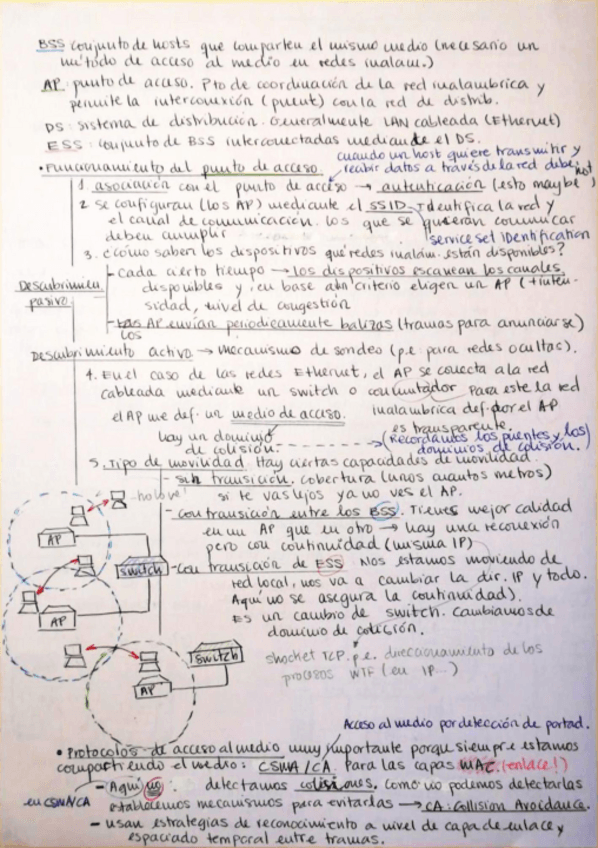 BSS conjunto de hosts que comparten el mismo medio (necesario un
método de acceso al medio en redes inalam.)
AP: punto de acceso. Pto de coordinación de la red inalámbrica y
permite la interconexión (puent) con la red de distrib.
DS: sistema de distribución. Generalmente LAN cableada (Ethernet)
ESS: conjunto de BSS interconectadas mediante el DS.
• Funcionamiento del punto de acceso.
cuando un host quiere transmitir y
recibir datos a través de la red debe
1. asociación con el punto de acceso → autenticación (esto maybe not)
2. Se configuran (los AP) mediante el SSID. Identifica la red y
el canal de comunicación. Los que se quieran comunicar
deben cumplir
service set identification
3. ¿Cómo saben los dispositivos qué redes inalám. están disponibles?
Descubrimien
pasivo
- Cada cierto tiempo → los dispositivos escanean los canales
disponibles y, en base a un criterio eligen un AP (+inten-
sidad, nivel de congestión
- Los AP envían periodicamente balizas (tramas para anunciarse)
Descubrimiento activo → mecanismo de sondeo (p.e. para redes ocultas).
4. En el caso de las redes Ethernet, el AP se conecta a la red
cableada mediante un switch o conmutador. Para este la red
inalambrica def. por el AP
es transparente.
el AP me def. un medio de acceso.
hay un dominio
de colisión.
(Recordamos los puentes y los
dominios de colisión.)
5. Tipo de movilidad. Hay ciertas capacidades de movilidad.
- sin transición. cobertura (unos cuantos metros)
si te vas lejos ya no ves el AP.
- con transición entre los BSS. Tienes mejor calidad
en un AP que en otro → hay una reconexión
pero con continuidad (misma IP)
- Con transición de ESS. Nos estamos moviendo de
red local, nos va a cambiar la dir. IP y todo.
Aquí no se asegura la continuidad).
Es un cambio de switch. Cambiamos de
dominio de colisión.
shocket TCP. p.e. direccionamiento de los
procesos WTF (en IP...)
AP
switch
AP
switch
AP
Acceso al medio por detección de portad.
• Protocolos de acceso al medio muy importante porque siempre estamos
compartiendo el medio: CSMA/CA. Para las capas MAC. (enlace!)
en CSMA/CA
- Aquí no detectamos colisiones. Como no podemos detectarlas
establecemos mecanismos para evitarlas → CA: Collision Avoidance.
- usan estrategias de reconocimiento a nivel de capa de enlace y
espaciado temporal entre tramas.